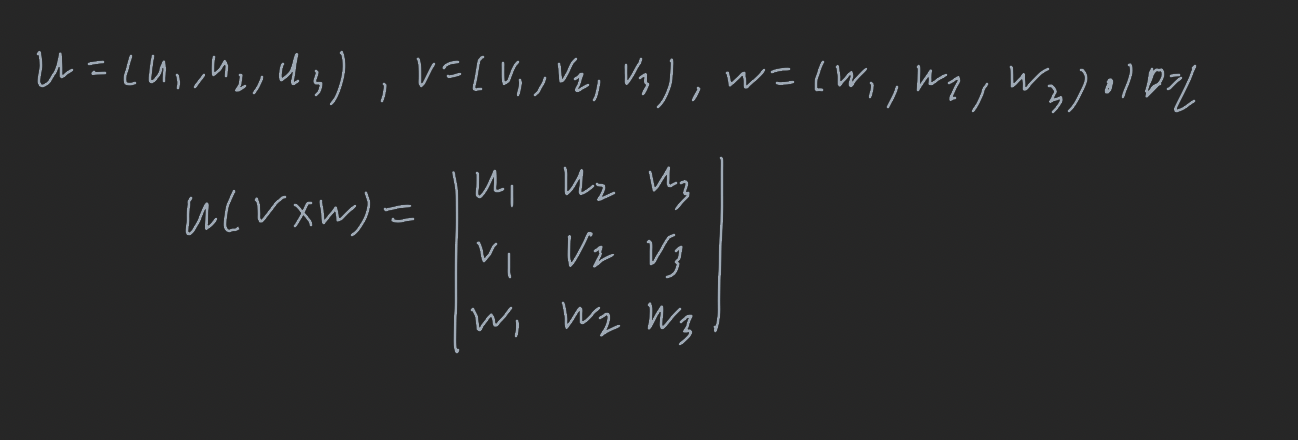 u = (u₁, u₂, u₃), v = (v₁, v₂, v₃), w = (w₁, w₂, w₃)이면
u(v×w) = | u₁ u₂ u₃ |
| v₁ v₂ v₃ |
| w₁ w₂ w₃ |